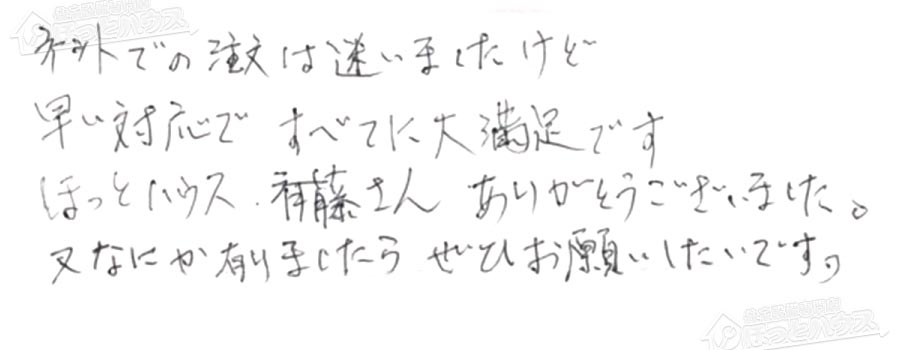 ネットでの注文は迷いましたけど
早い対応で すべてに大満足です
ほっとハウス 斉藤さん ありがとうございました。
又なにか有りましたら ぜひお願いしたいです。
ほっとハウス
ほっとハウス